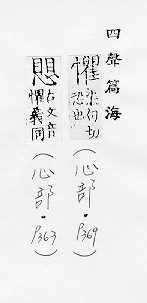 四聲篇海
懼
渠向切
恐也
(心部・P369)
思
古文音
懼義同
(心部・P363)